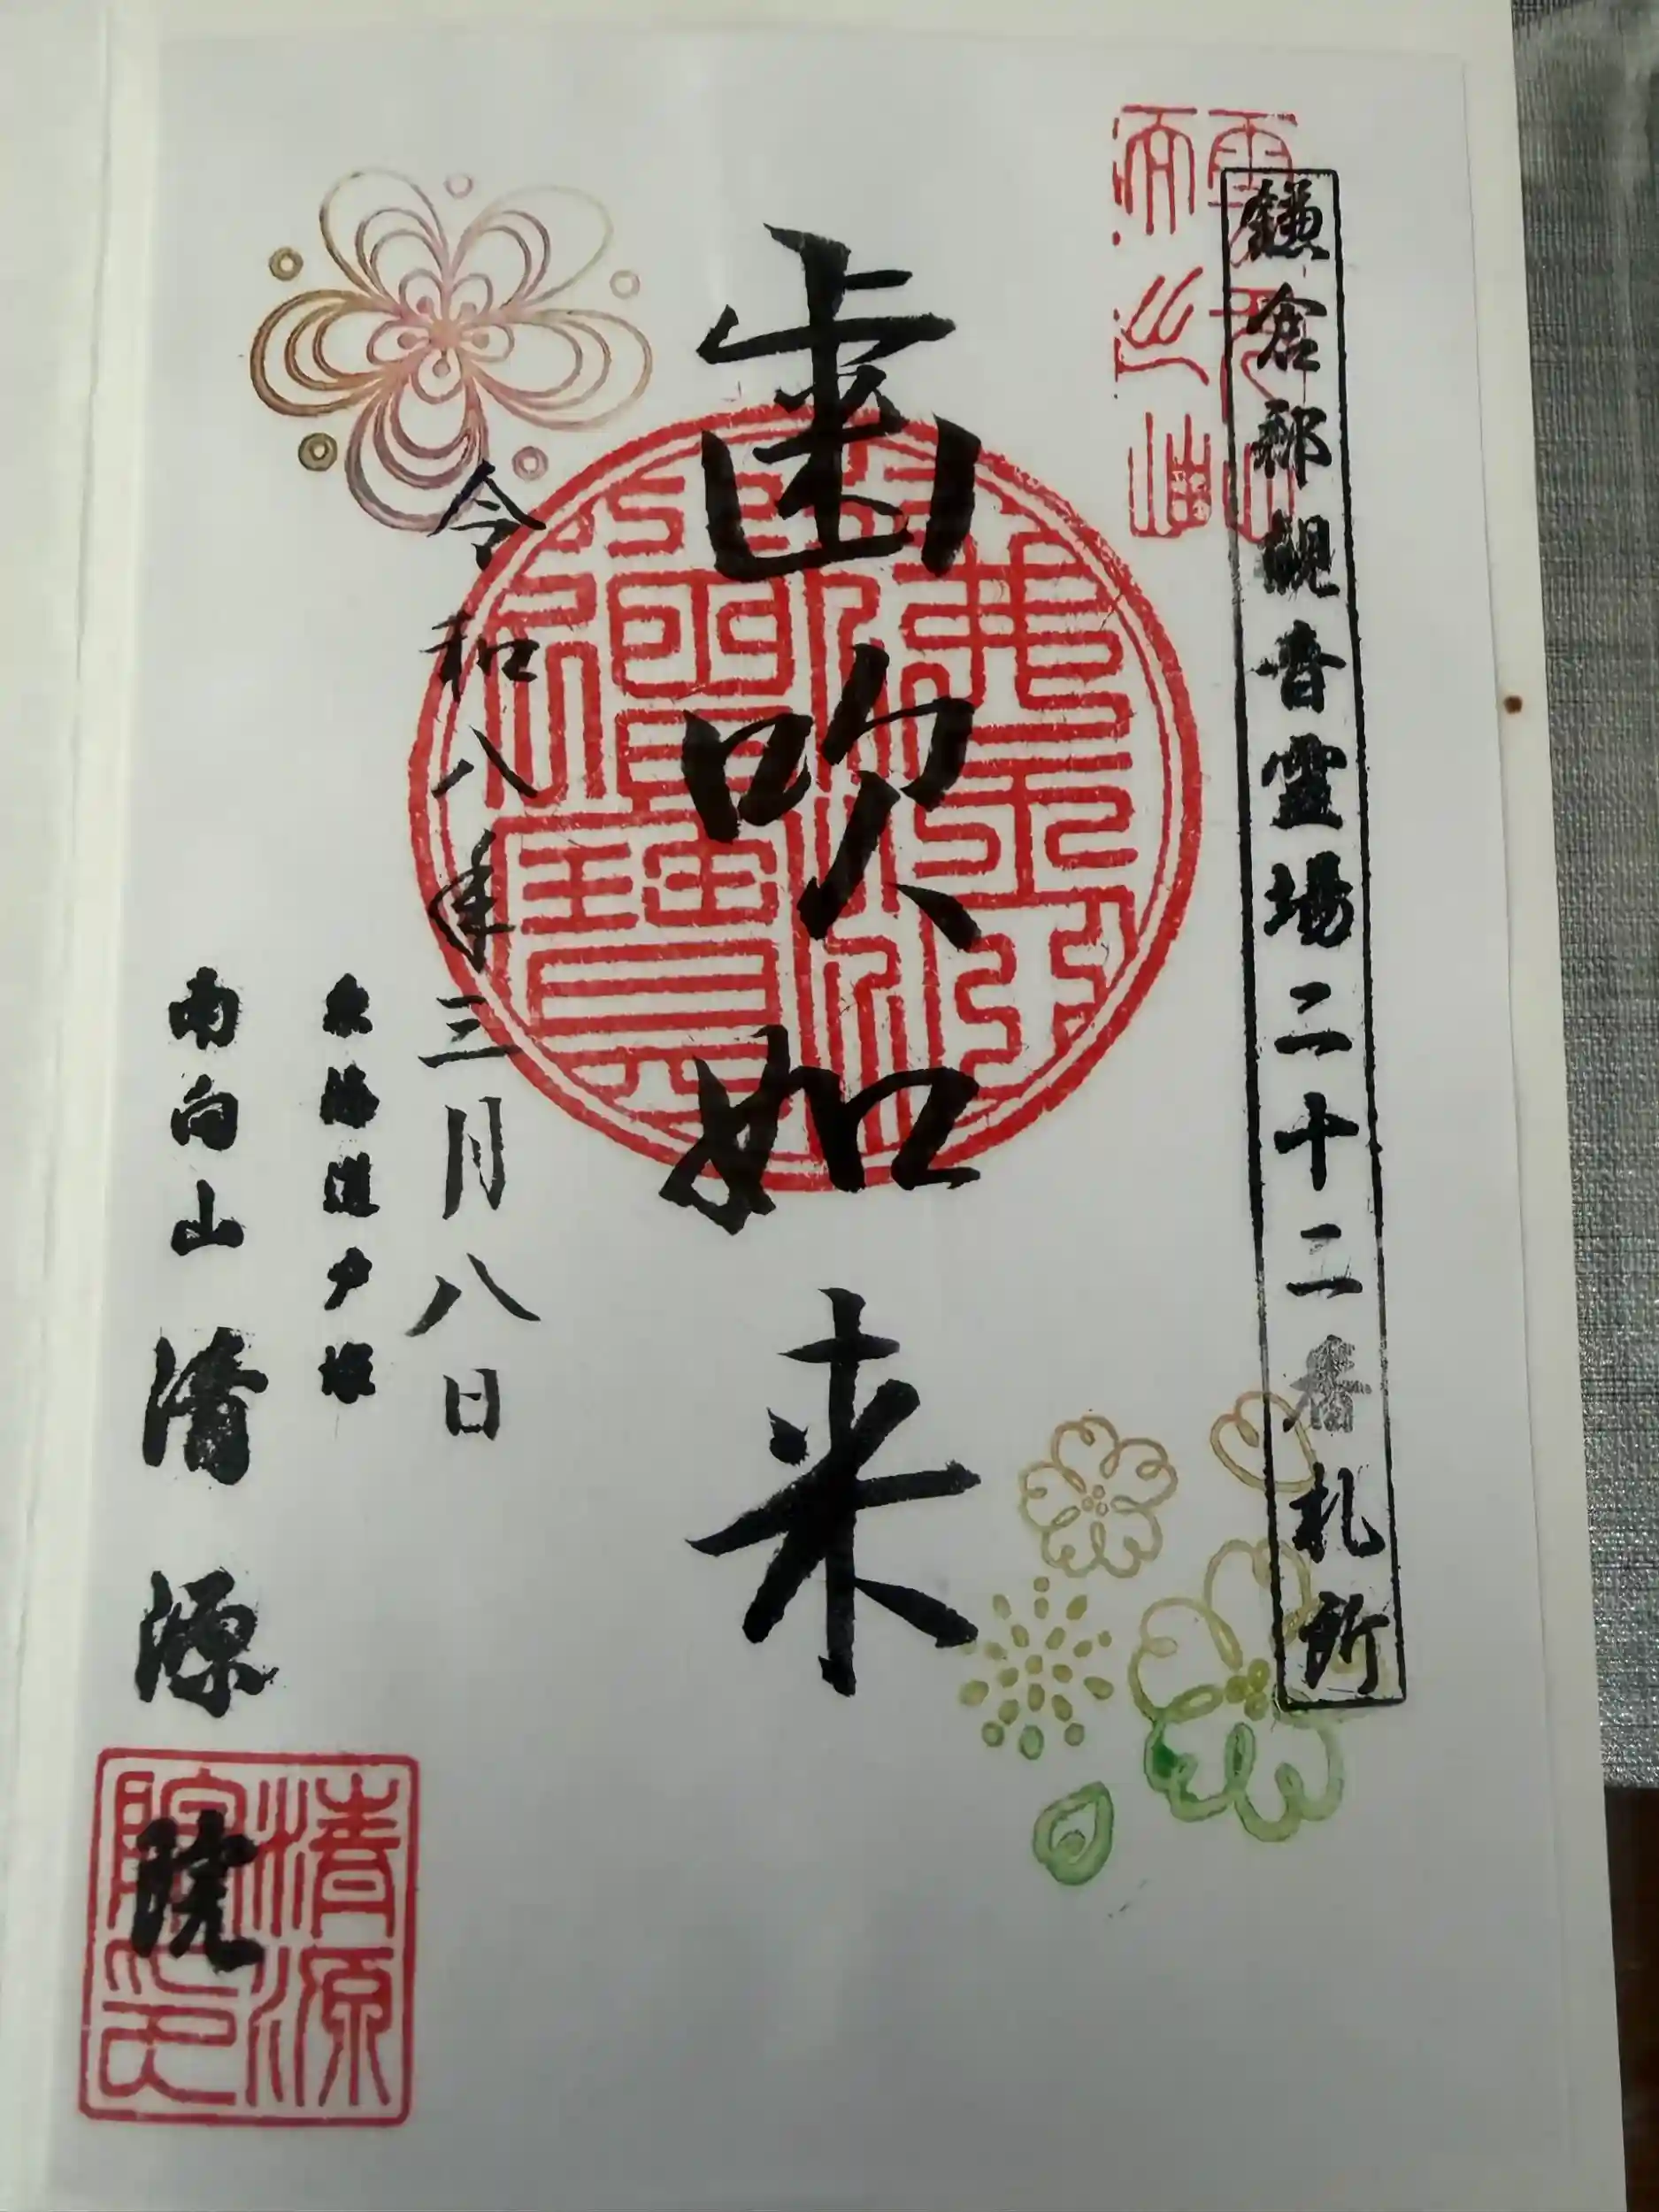 鎌倉郡観音霊場二十二番札所
歯吹如来
令和八年三月八日
東海道戸塚
南向山 清源院
佛法僧寳
清源院印